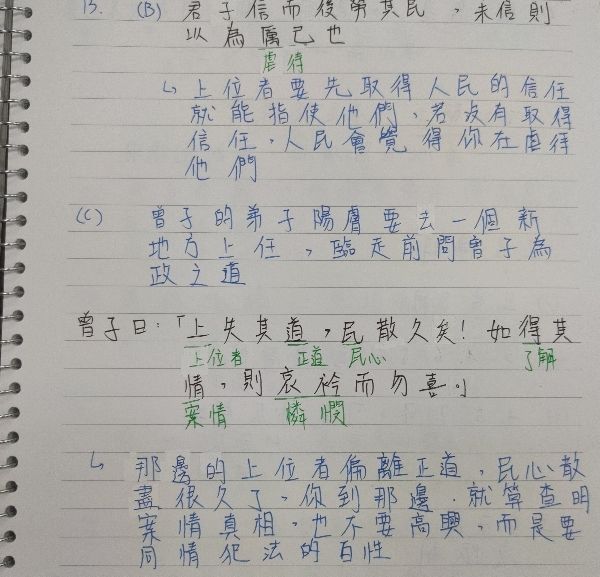 13. (B) 君子信而後勞其民，未信則
以為厲己也
虐待
↳ 上位者要先取得人民的信任
就能指使他們，若沒有取得
信任，人民會覺得你在虐待
他們
(C) 曾子的弟子陽膚要去一個新
地方上任，臨走前問曾子為
政之道
曾子曰：「上失其道，民散久矣！如得其
上位者 正道 民心 了解
情，則哀衿而勿喜。」
案情 憐憫
↳ 那邊的上位者偏離正道，民心散
盡很久了，你到那邊，就算查明
案情真相，也不要高興，而是要
同情犯法的百性